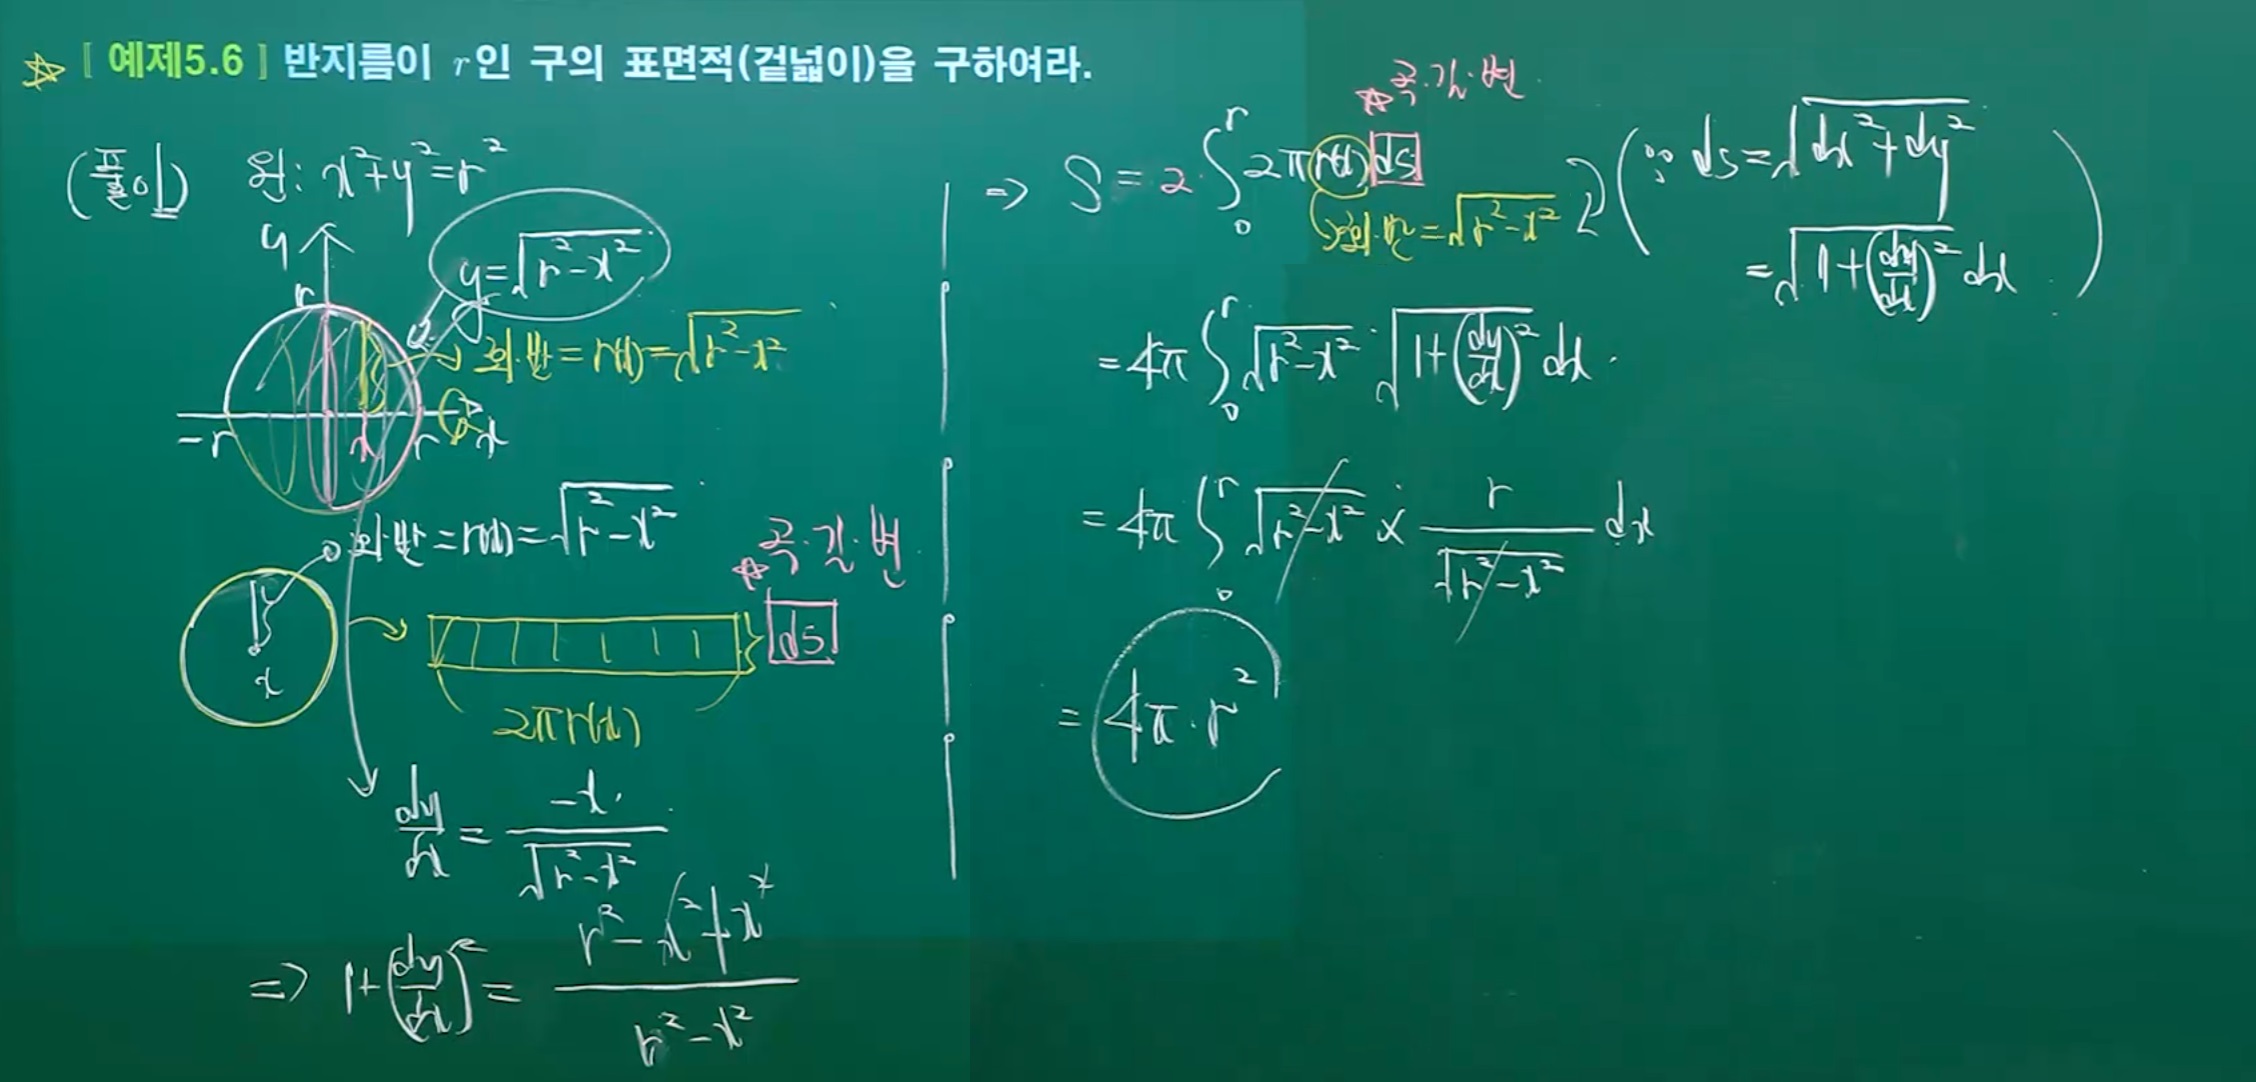 ☆ [ 예제5.6 ] 반지름이 r인 구의 표면적(겉넓이)을 구하여라.
(풀이) 원: x²+y²=r²
y
y=√(r²-x²)
r
회·반=r(x)=√(r²-x²)
-r x r x
회·반=r(x)=√(r²-x²)
☆ 곡·길·변
x
ds
2πr(x)
dy/dx = -x/√(r²-x²)
⇒ 1+(dy/dx)² = (r²-x²+x²)/(r²-x²)
☆ 곡·길·변
⇒ S = 2·∫₀ʳ 2πr(x) ds (∵ ds=√(dx²+dy²)
회·반=√(r²-x²)
=√(1+(dy/dx)²) dx)
=4π ∫₀ʳ √(r²-x²) · √(1+(dy/dx)²) dx
=4π ∫₀ʳ √(r²-x²) × r/√(r²-x²) dx
= 4π·r²